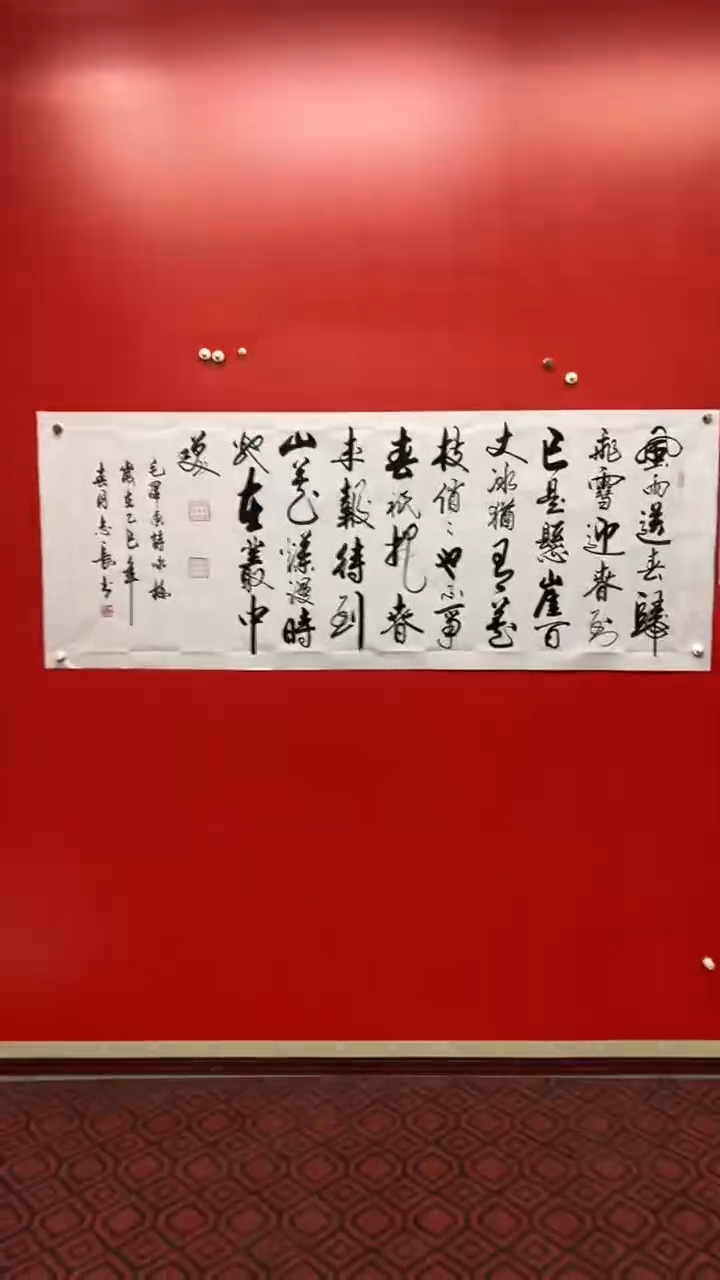 風雨送春歸
飛雪迎春到
已是懸崖百
丈冰猶有花
枝俏〻也不爭
春祇把春
来報待到
山花爛漫時
她在叢中
笑
毛澤東詩詠梅
歲在乙巳年
春月志長书